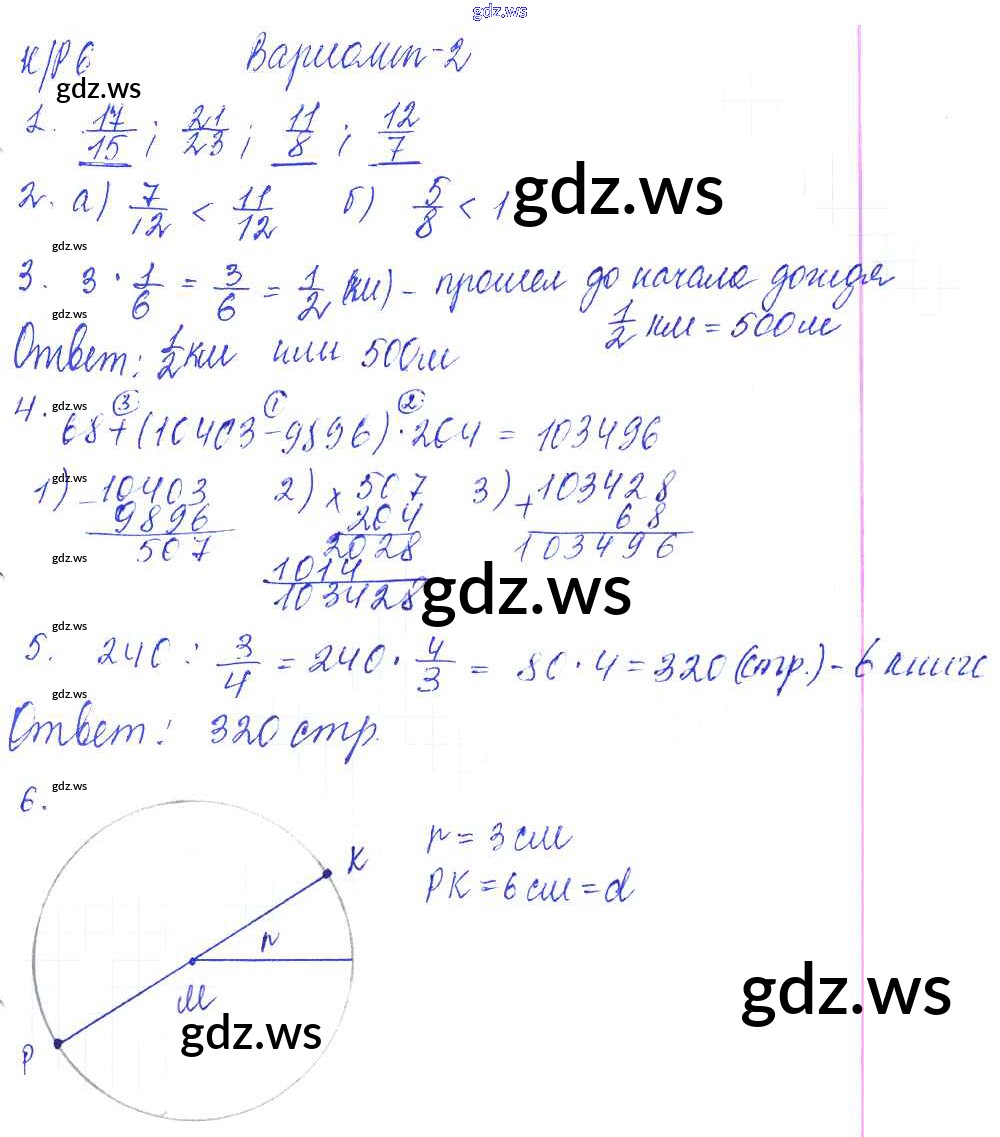 gdz.ws
К/Р 6 Вариант-2
gdz.ws
1. 17/15 ; 21/23 ; 11/8 ; 12/7
gdz.ws
2. а) 7/12 < 11/12 б) 5/8 < 1
gdz.ws
3. 3 · 1/6 = 3/6 = 1/2 (км) - прошел до начала дождя
gdz.ws
1/2 км = 500 м
Ответ: 1/2 км или 500 м
gdz.ws
3 1 2
4. 68 + (10403 - 9896) · 204 = 103496
gdz.ws
1) - 10403 2) x 507 3) + 103428
9896 204 68
507 2028 103496
gdz.ws
1014
103428
gdz.ws
gdz.ws
5. 240 : 3/4 = 240 · 4/3 = 80 · 4 = 320 (стр.) - в книге
gdz.ws
Ответ: 320 стр.
gdz.ws
6.
r = 3 см
K
PK = 6 см = d
r
M
gdz.ws
gdz.ws
P